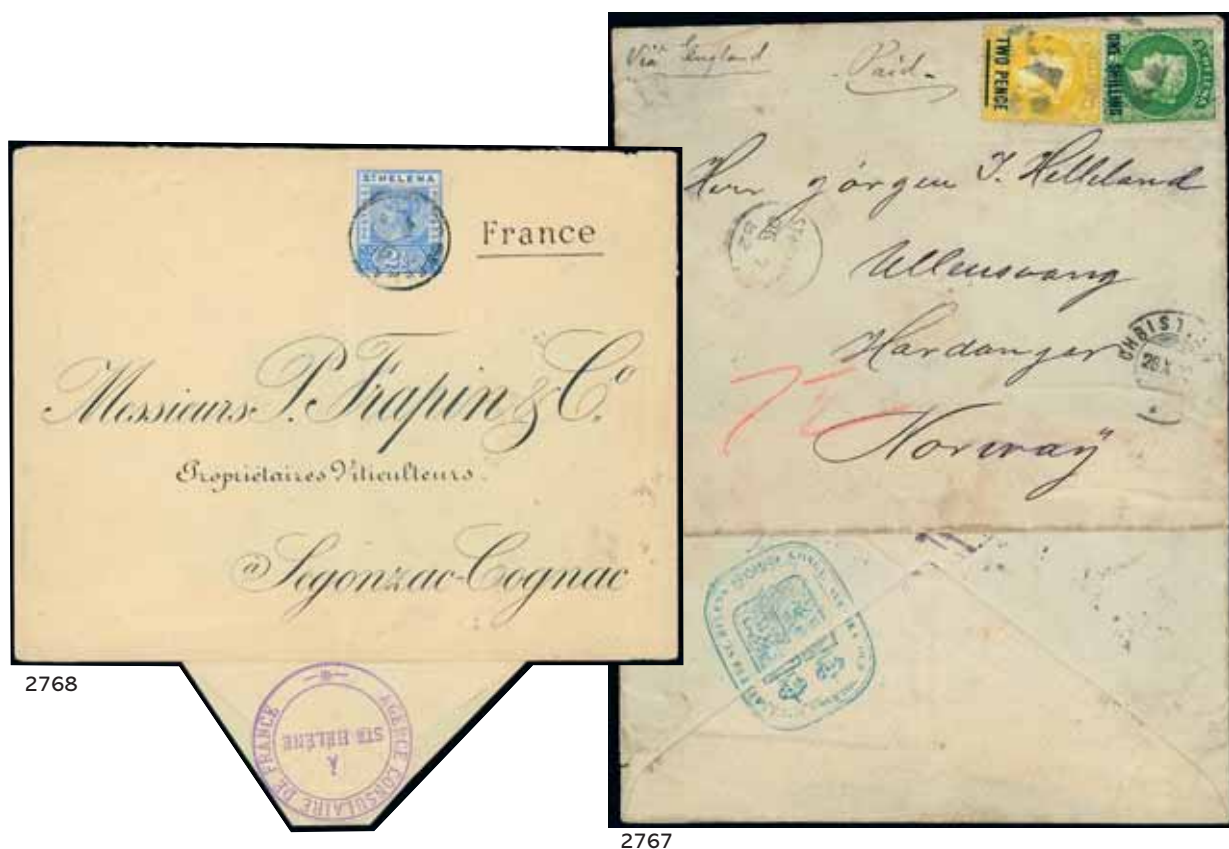 ST HELENA
2½
France
Messieurs P. Frapin & Co.
Propriétaires Viticulteurs.
à Segonzac-Cognac
2768
AGENCE CONSULAIRE DE FRANCE
À
STE HÉLÈNE
Via England
Paid
TWO PENCE
ONE SHILLING
Herr Jörgen J. Helleland
Ullensvang
Hardanger
Norway
CHRIST
26 X
2767